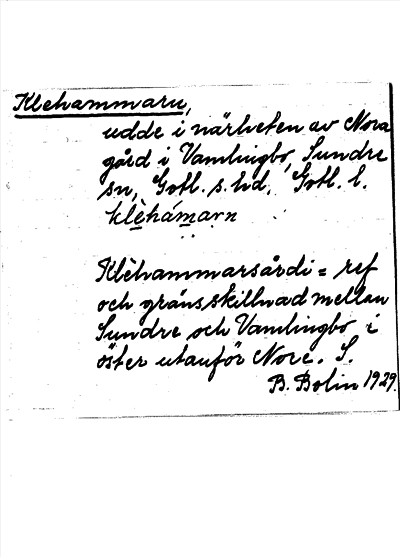 Klehammaru,
udde i närheten av Nora
gård i Vamlingbo, Sundre
sn, Gotl. s. hd, Gotl. l.
klèhámarn
Klèhammarsårdi = ref
och gränsskillnad mellan
Sundre och Vamlingbo i
öster utanför Nore. S.
B. Bolin 1929.